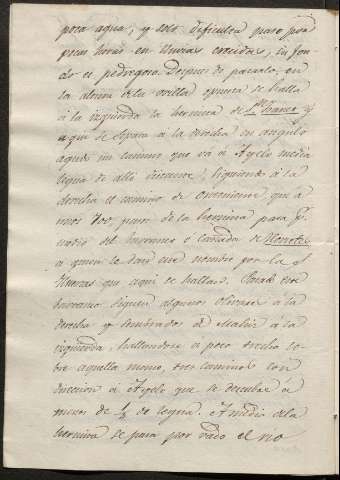 poca agua, y solo dificulta paso por
pocas horas en lluvias crecidas, su fon-
do es pedregoso. Despues de pasarlo, en
la altura de la orilla opuesta se halla
á la izquierda la hermita de Sn. y
aqui se separa á la derecha en angulo
agudo un camino que vá á Ayelo media
legua de alli distante, siguiendo á la
derecha el camino de Onteniente que á
unos 700, pasos de la hermita pasa
del barranco ó cañada de
á quien le dan ese nombre por la
que aqui se hallan. Pasado ese
barranco siguen algunos olivares á la
derecha y sembrados de Maiz á la
izquierda, hallandose á poco trecho so-
bre aquella mano, tres caminos con
direccion á Ayelo que se descubre á
menos de ½ de legua. A media dela
hermita se pasa por vado el rio